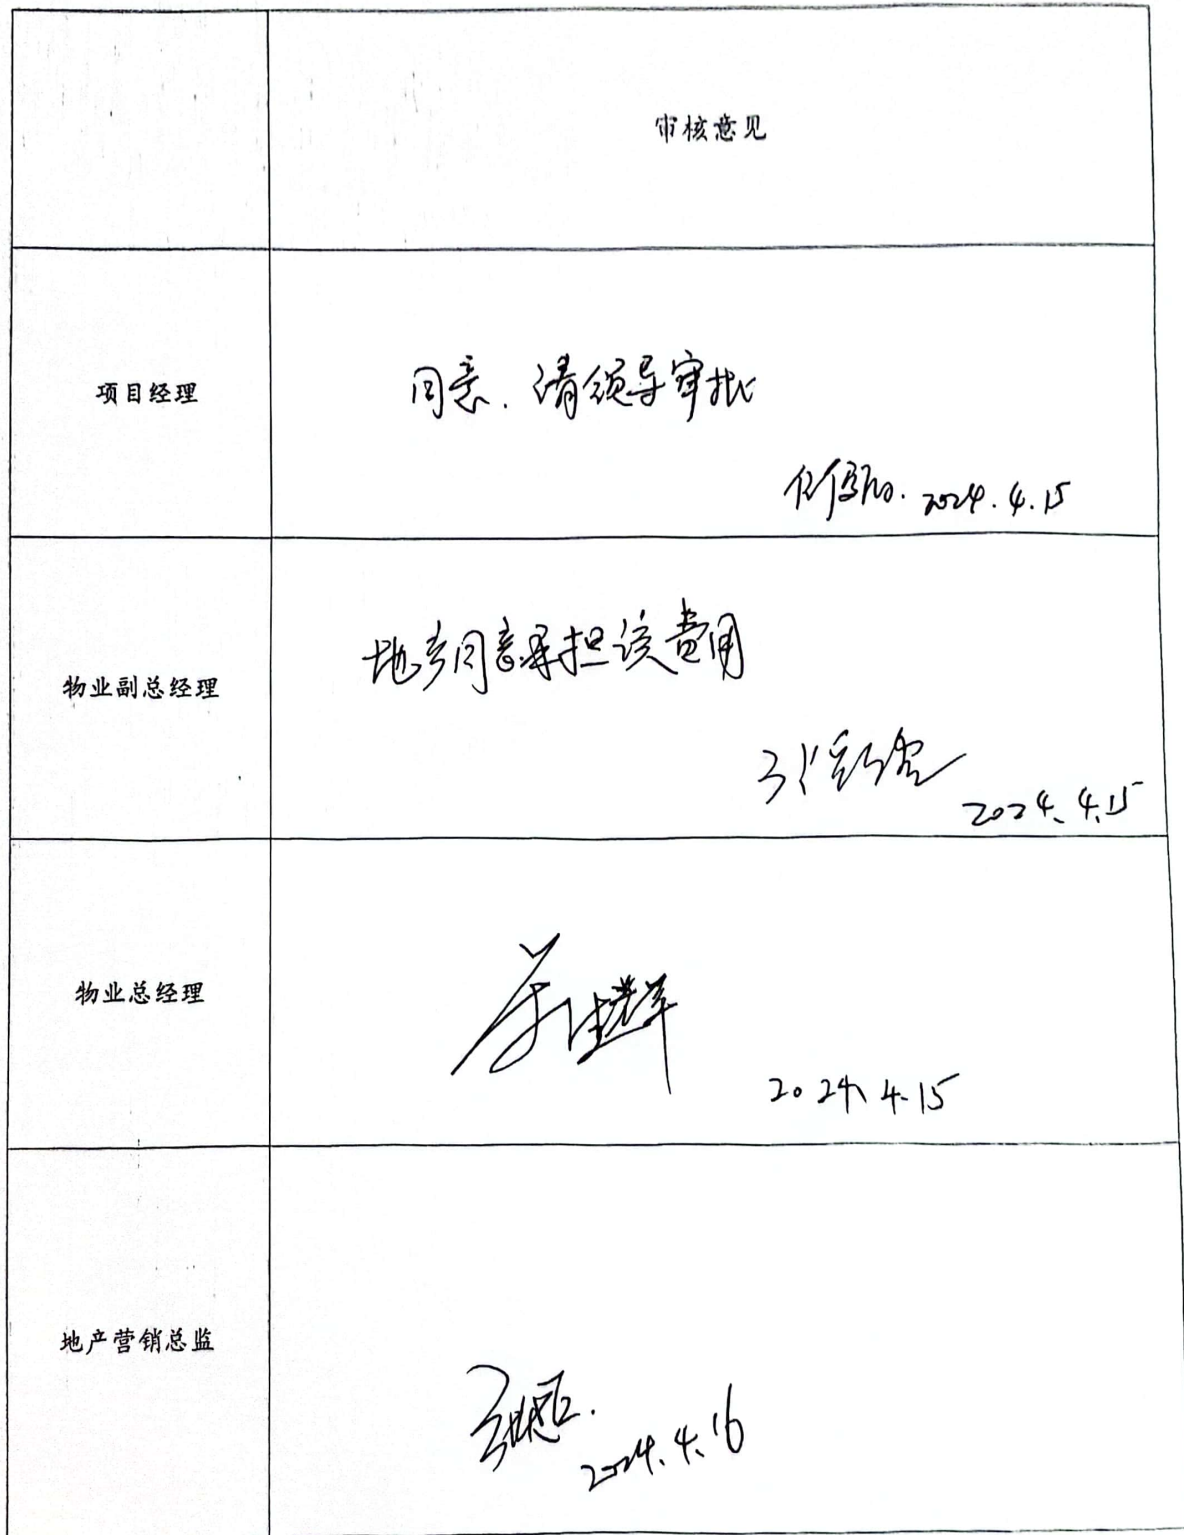 审核意见
项目经理
同意、请领导审批
2024.4.15
物业副总经理
地产同意承担该费用
2024.4.15
物业总经理
2024.4.15
地产营销总监
2024.4.16